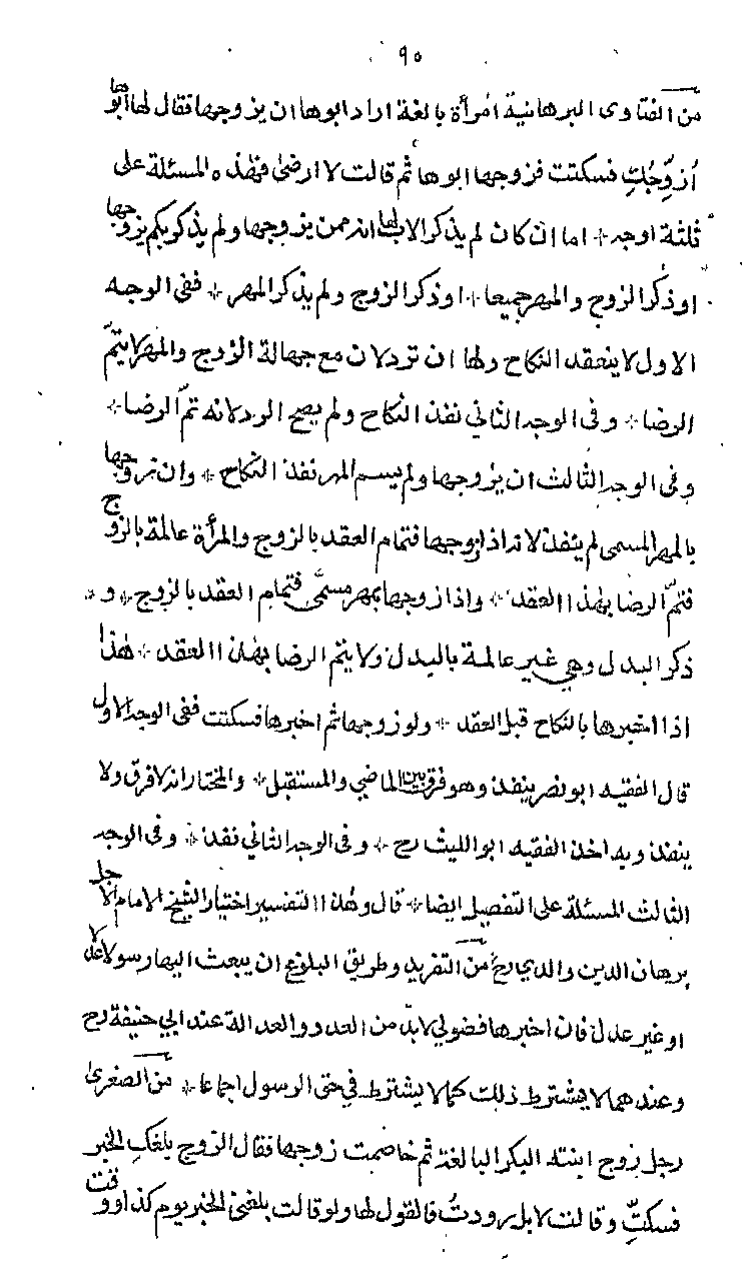 ٩٥
من الفتاوى البرهانية امرأة بالغة اراد ابوها ان يزوجها فقال لها ابوها
أزوّجُكِ فسكتت فزوجها ابوها ثم قالت لا ارضى فهذه المسئلة على
ثلثة اوجه * اما ان كان لم يذكر الاب لها انه ممن يزوجها ولم يذكر بكم يزوجها
او ذكر الزوج والمهر جميعا * او ذكر الزوج ولم يذكر المهر * ففى الوجه
الاول لا ينعقد النكاح ولها ان ترد لان مع جهالة الزوج والمهر لا يتمّ
الرضا * وفى الوجه الثاني نفذ النكاح ولم يصح الرد لانه تمّ الرضا *
وفى الوجه الثالث ان يزوجها ولم يسم المهر نفذ النكاح * وان زوجها
بالمهر المسمى لم ينفذ لانه اذا زوجها فتمام العقد بالزوج والمرأة عالمة بالزوج
فتمّ الرضا بهذا العقد * واذا زوجها بمهر مسمّى فتمام العقد بالزوج * و *
ذكر البدل وهي غير عالمة بالبدل ولا يتم الرضا بهذا العقد * هذا
اذا اخبرها بالنكاح قبل العقد * ولو زوجها ثم اخبرها فسكتت ففى الوجه الاول
قال الفقيه ابو نصر ينفذ وهو فرق بين الماضي والمستقبل * والمختار انه لا فرق ولا
ينفذ وبه اخذ الفقيه ابو الليث رح * وفى الوجه الثاني نفذ * وفى الوجه
الثالث المسئلة على التفصيل ايضا * قال وهذا التفسير اختيار الشيخ الامام الاجل
برهان الدين والدي رح من التفريد وطريق البلوغ ان يبعث اليها رسولا عدلا
او غير عدل فان اخبرها فضولي لا بدّ من العدد والعدالة عند ابي حنيفة رح
وعندهما لا يشترط ذلك كما لا يشترط في حق الرسول اجماعا * من الصغرى
رجل زوج ابنته البكر البالغة ثم خاصمت زوجها فقال الزوج بلغكِ الخبر
فسكتِّ وقالت لا بل رددتُ فالقول لها ولو قالت بلغنى الخبر يوم كذا ووقت